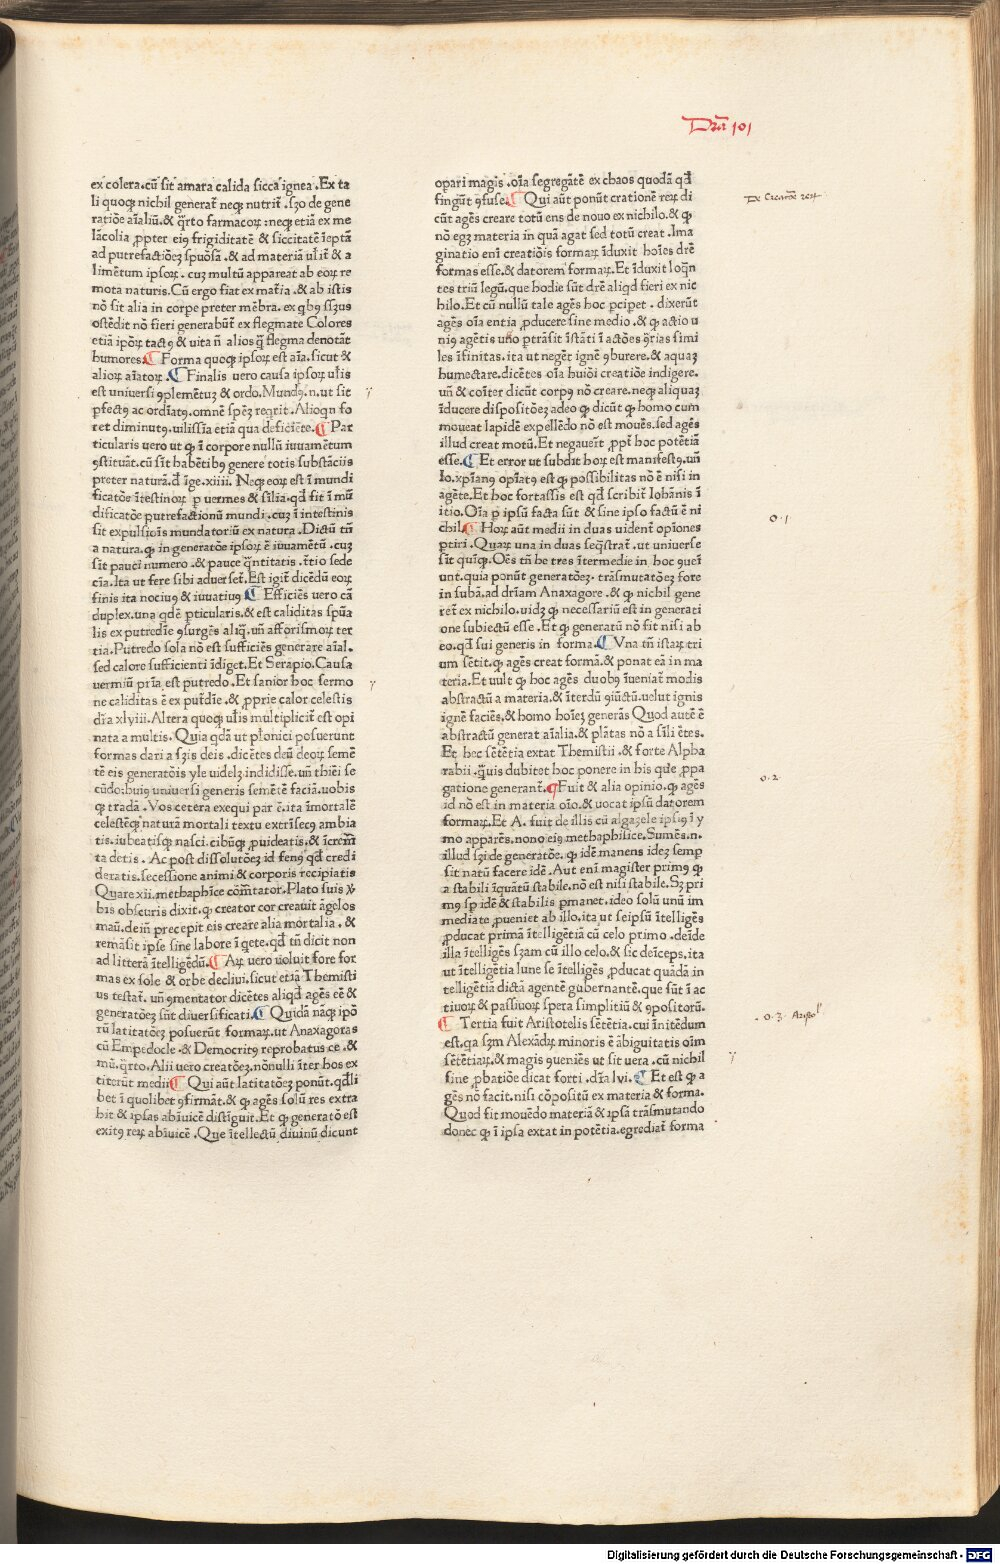 Dr̄a 101
ex colera.cū sit amara calida sicca ignea.Ex ta
li quoqȝ nichil generat̄ neqȝ nutrit̄.sꝫo de gene
ratiōe aīaliū.& q̄rto farmacoꝝ:neqȝ etiā ex me
lācolia ꝓpter eiꝰ frigiditatē & siccitatē īeptā
ad putrefactiōeꝫ spuōsā.& ad materiā ul̄it̄ & a
limētum ipsoꝝ. cuꝫ multū appareat ab eoꝝ re
mota naturis.Cū ergo fiat ex mat̄ia.& ab istis
nō sit alia in corpe preter mēbra.ex qbꝰ sꝫꝫus
ostēdit nō fieri generabūt̄ ex flegmate Colores
etiā ipōꝝ tactꝰ & vita n̄ alios q̄ flegma denotāt
humores.¶ Forma quoqȝ ipsoꝝ est aīa.sicut &
alioꝝ aīatoꝝ.¶ Finalis vero causa ipsoꝝ ul̄is
est universi ꝯplementuꝫ & ordo.Mundꝰ.n.ut sit
pfectꝰ ac ordīatꝰ.omnē spēꝫ reqrit.Alioqn fo
ret diminutꝰ.uilissīa etiā qua deficiēte.¶ Par
ticularis uero ut ꝙ ī corpore nullū iuuamētum
ꝯstituāt.cū sīt habētibꝰ genere totis substāciis
preter naturā.d̄ īge.xiiii. Neqȝ eoꝝ est ī mundi
ficatōe ītestinoꝝ ꝑ vermes & sīlia.qd̄ fit ī mū
dificatōe putrefactionū mundi.cuꝫ ī intestinis
sit expulsiois mundatoriū ex natura.Dictū tn̄
a natura.ꝙ in generatōe ipsoꝝ ē iuuamētū.cuꝫ
sīt pauci numero.& pauce q̄ntitatis.t̄tio sede
cīa.Ita ut fere sibi aduerset̄.Est igit̄ dicēdū eoꝝ
finis ita nociuꝰ & iuuatiuꝰ ¶ Efficiēs uero cā
duplex.una qdē ꝑticularis.& est caliditas spūa
lis ex putredīe ꝯsurgēs aliq̄.un̄ afforismoꝝ ter
tia.Putredo sola nō est sufficiēs generare aīal.
sed calore sufficienti īdiget.Et Serapio.Causa
uermiū prīa est putredo.Et sanior hoc sermo
ne caliditas ē ex put̄dīe.& ꝓprie calor celestis
dr̄a xlviii.Altera quoqȝ ul̄is multiplicit̄ est opi
nata a multis.Quia qdā ut plōnici posuerunt
formas dari a sꝫis deis.dicētes deū deoꝝ semē
tē eis generatōis yle uidelꝫ indidisse.un̄ thiēi se
cūdo:huiꝰ uniuersi generis semētē faciā.uobis
qꝫ tradā.Vos cetera exequi par ē.ita īmortalē
celestēqȝ naturā mortali textu extrīsecꝰ ambia
tis.iubeatisqȝ nasci.cibūqȝ ꝓuideatis.& īcrem̄
ta detis. Ac post dissolutōeꝫ id fenꝰ qd̄ credi
deratis.secessione animi & corporis recipiatis
Quare xii.methaphīce cōm̄tator.Plato suis v̄
bis obscuris dixit.qꝫ creator cor creauit āgelos
maū.dein̄ precepit eis creare alia mortalia.&
remāsit ipse sine labore ī q̄ete.qd̄ tn̄ dicit non
ad litterā ītelligēdū.¶ Aꝝ uero uoluit fore for
mas ex sole & orbe decliui.sicut etiā Themisti
us testat̄.un̄ ꝯmentator dicētes aliqd̄ agēs eē &
generatōeꝫ sūt diuersificati.¶ Quidā nāqȝ ipō
rū latitatōeꝫ posuerūt formaꝝ.ut Anaxagoras
cū Empedocle.& Democritꝰ reprobatus ce.&
mū.q̄rto.Alii uero creatōeꝫ.nōnulli īter hos ex
titerūt medii¶ Qui aūt latitatōeꝫ ponūt.qd̄li
bet ī quolibet ꝯfirmāt.& ꝙ agēs solū res extra
hit & ipsas abīuicē distīguit.Et ꝙ generatō est
exitꝰ reꝝ abīuicē.Que ītellectū diuinū dicunt
opari magis.oīa segregātē ex chaos quodā qd̄
fingūt ꝯfuse.¶ Qui aūt ponūt crationē reꝝ di
cūt agēs creare totū ens de nouo ex nichilo.& ꝙ
nō egꝫ materia in quā agat sed totū creat.Ima
ginatio eni creatiōis formaꝝ īduxit hoīes dr̄e
formas esse.& datorem formaꝝ.Et īduxit loqn̄
tes triū legū.que hodie sūt dr̄e aliqd fieri ex nic
hilo.Et cū nullū tale agēs hoc ꝑcipet. dixerūt
agēs oīa entia ꝓducere sine medio.& ꝙ actio u
niꝰ agētis uno ptrāsit īstāti ī actōes ꝯ̄rias simi
les īfinitas.ita ut negēt ignē ꝯburere.& aquaꝫ
humectare.dicētes oīa huiōi creatiōe indigere.
un̄ & coīter dicūt corpꝰ nō creare.neqȝ aliquaꝫ
īducere dispositōeꝫ adeo ꝙ dicūt ꝙ homo cum
moueat lapidē expellēdo nō est mouēs.sed agēs
illud creat motū.Et negauer̄t ꝓpt̄ hoc potētiā
esse.¶ Et error ut subdit hoꝝ est manifestꝰ.un̄
Io.xp̄ianꝰ opīatꝰ est ꝙ possibilitas nō ē nisi in
agēte.Et hoc fortassis est qd̄ scribit̄ Iohānis ī
itio.Oīa ꝑ ipsū facta sūt & sine ipso factū ē ni
chil¶ Hoꝝ aūt medii in duas uident̄ opīones
ꝑtiri.Quaꝝ una in duas seq̄strat̄.ut uniuerse
sīt quīqȝ.Oēs tn̄ he tres ītermedie in hoc ꝯuei
unt.quia ponūt generatōeꝫ.trāsmutatōeꝫ fore
in subā.ad dr̄iam Anaxagore.& ꝙ nichil gene
ret̄ ex nichilo.uidꝫ ꝙ necessariū est in generati
one subiectū esse.Et ꝙ generatū nō fit nisi ab
eo.qd̄ sui generis in forma.¶ Vna tn̄ istaꝝ tri
um sētit.ꝙ agēs creat formā.& ponat eā in ma
teria.Et uult ꝙ hoc agēs duobꝰ īueniat̄ modis
abstractū a materia.& īterdū ꝯiūctū.uelut ignis
ignē faciēs.& homo hoīeꝫ generās Quod autē ē
abstractū generat aīalia.& plātas nō a sīli ētes.
Et hec sētētia extat Themistii.& forte Alpha
rabii.q̄uis dubitet hoc ponere in his que ꝓpa
gatione generant̄.¶Fuit & alia opinio.ꝙ agēs
id nō est in materia oīo.& uocat ipsū datorem
formaꝝ.Et A. fuit de illis cū algazele ipsiꝰ ī y
mo apparēs.nono eiꝰ methaphisice.Sumēs.n.
illud sꝫi de generatōe.ꝙ idē manens ideꝫ semp
sit natū facere idē.Aut eni magister primꝰ ꝙ
a stabili īquātū stabile.nō est nisi stabile.Sꝫ pri
mꝰ sp idē & stabilis pmanet.ideo solū unū im
mediate ꝓueniet ab illo.ita ut seipsū ītelligēs
ꝓducat primā ītelligētiā cū celo primo.deīde
illa ītelligēs sꝫam cū illo celo.& sic deīceps.ita
ut ītelligētia lune se ītelligēs ꝓducat quādā in
telligētiā dictā agentē gubernantē.que sūt ī ac
tiuoꝝ & passiuoꝝ spera simplitiū & ꝯpositorū.
¶ Tertia fuit Aristotelis sētētia.cui īnitēdum
est.qa sꝫm Alexādꝝ minoris ē ābiguitatis oīm
sētētiaꝝ.& magis ꝯueniēs ut sit uera.cū nichil
sine ꝓbatiōe dicat forti.dr̄īa lvi.¶ Et est ꝙ a
gēs nō facit.nisi cōpositū ex materia & forma.
Quod fit mouēdo materiā & ipsā trāsmutando
donec ꝙ ī ipsa extat in potētia.egrediat̄ forma
De Creatōe reꝝ
o.1
o.2.
.o.3. Aristol
Digitalisierung gefördert durch die Deutsche Forschungsgemeinschaft - DFG